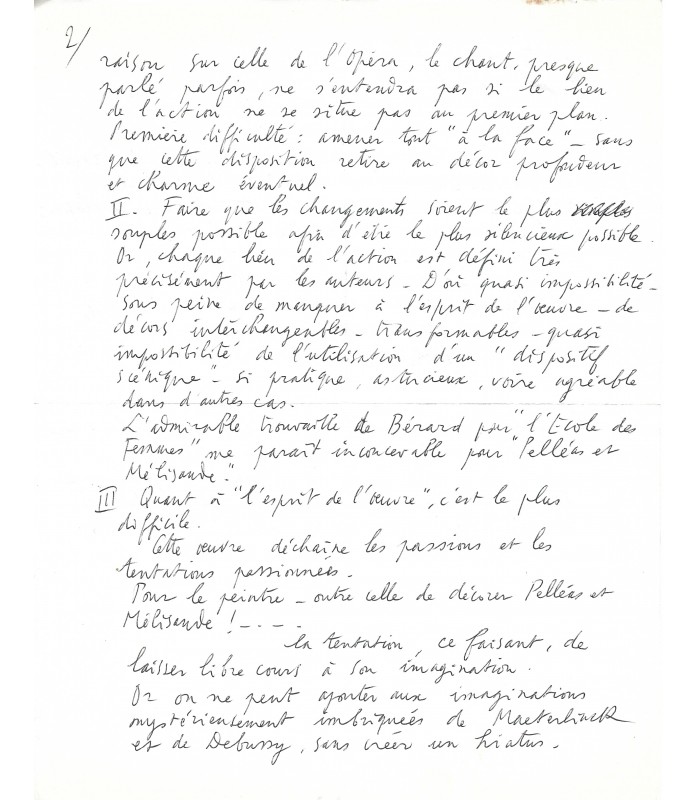 2/
raison sur celle de l'Opéra, le chant, presque
parlé parfois, ne s'entendra pas si le lieu
de l'action ne se situe pas au premier plan.
Première difficulté : amener tout "à la face" _ sans
que cette disposition retire au décor profondeur
et charme éventuel.
II. Faire que les changements soient le plus
souples possible afin d'être le plus silencieux possible.
Or, chaque lieu de l'action est défini très
précisément par les auteurs _ D'où quasi impossibilité _
sous peine de manquer à l'esprit de l'œuvre _ de
décors interchangeables _ transformables _ quasi
impossibilité de l'utilisation d'un "dispositif
scénique" _ si pratique, astucieux, voire agréable
dans d'autres cas.
L'admirable trouvaille de Bérard pour "l'Ecole des
Femmes" me paraît inconcevable pour "Pelléas et
Mélisande".
III Quant à "l'esprit de l'œuvre", c'est le plus
difficile.
Cette œuvre déchaîne les passions et les
tentations passionnées.
Pour le peintre _ outre celle de décorer Pelléas et
Mélisande ! _ . _ .
la tentation, ce faisant, de
laisser libre cours à son imagination.
Or on ne peut ajouter aux imaginations
mystérieusement imbriquées de Maeterlinck
et de Debussy, sans créer un hiatus.